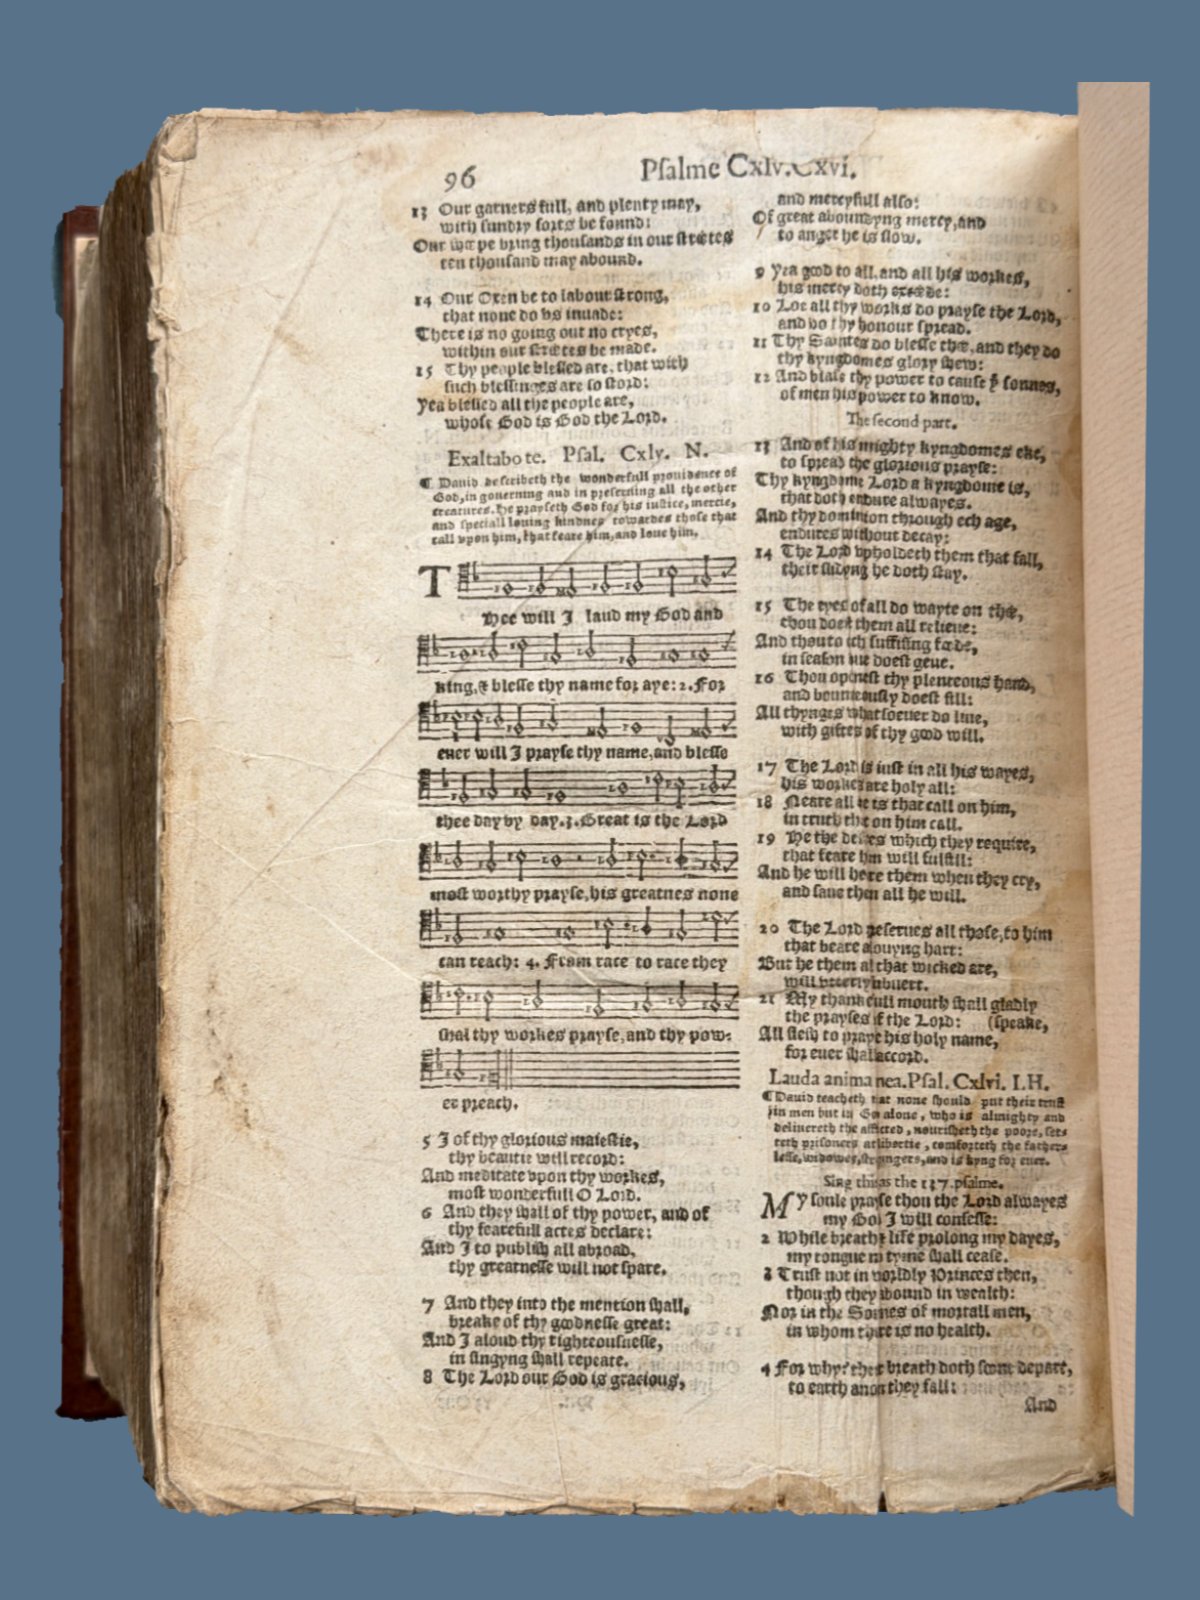 96
Psalme Cxlv.Cxvi.
13 Our garners full, and plenty may,
with sundry sorts be found:
Our shepe bring thousands in our streetes
ten thousand may abound.
14 Our Oxen be to labour strong,
that none do vs inuade:
There is no going out no cryes,
within our streetes be made.
15 Thy people blessed are, that with
such blessinges are so stord:
Yea blessed all the people are,
whose God is God the Lord.
Exaltabo te. Psal. Cxlv. N.
¶ Dauid describeth the wonderfull prouidence of
God, in gouerning and in preseruing all the other
creatures. He prayseth God for his iustice, mercie,
and speciall louing kindnes towardes those that
call vpon him, that feare him, and loue him.
T
Hee will I laud my God and
king, & blesse thy name for aye: 2. For
euer will I prayse thy name, and blesse
thee day by day. 3. Great is the Lord
most worthy prayse, his greatnes none
can reach: 4. From race to race they
shal thy workes prayse, and thy pow-
er preach.
5 I of thy glorious maiestie,
thy beautie will record:
And meditate vpon thy workes,
most wonderfull O Lord.
6 And they shall of thy power, and of
thy fearefull actes declare:
And I to publish all abroad,
thy greatnesse will not spare.
7 And they into the mention shall,
breake of thy goodnesse great:
And I aloud thy righteousnesse,
in singyng shall repeate.
8 The Lord our God is gracious,
and mercyfull also:
Of great aboundyng mercy, and
to anger he is slow.
9 Yea good to all, and all his workes,
his mercy doth exceede:
10 Loe all thy works do prayse the Lord,
and do thy honour spread.
11 Thy Saintes do blesse thee, and they do
thy kyngdomes glory shew:
12 And blase thy power to cause þͤ sonnes,
of men his power to know.
The second part.
13 And of his mighty kyngdomes eke,
to spread the glorious prayse:
Thy kyngdome Lord a kyngdome is,
that doth endure alwayes.
And thy dominion through ech age,
endures without decay:
14 The Lord vpholdeth them that fall,
their slidyng he doth stay.
15 The eyes of all do wayte on thee,
thou doest them all relieue:
And thou to ech suffising foode,
in season due doest geue.
16 Thou openest thy plenteous hand,
and bounteously doest fill:
All thynges whatsoeuer do liue,
with giftes of thy good will.
17 The Lord is iust in all his wayes,
his workes are holy all:
18 Neare all he is that call on him,
in truth that on him call.
19 He the desires which they require,
that feare him will fulfill:
And he will here them when they cry,
and saue then all he will.
20 The Lord preserues all those, to him
that beare a louyng hart:
But he them al that wicked are,
will vtterly subuert.
21 My thankfull mouth shall gladly
the prayses of the Lord: (speake,
All flesh to prayse his holy name,
for euer shal accord.
Lauda anima mea. Psal. Cxlvi. I.H.
¶ Dauid teacheth that none should put their trust
in men but in God alone, who is almighty and
deliuereth the afflicted, nourisheth the poore, set-
teth prisoners at libertie, comforteth the father-
lesse, widowes, strangers, and is kyng for euer.
Sing this as the 137. psalme.
MY soule prayse thou the Lord alwayes
my God I will confesse:
2 While breath & life prolong my dayes,
my tongue no tyme shall cease.
3 Trust not in worldly Princes then,
though they abound in wealth:
Nor in the Sonnes of mortall men,
in whom there is no health.
4 For why? their breath doth soone depart,
to earth anon they fall:
And